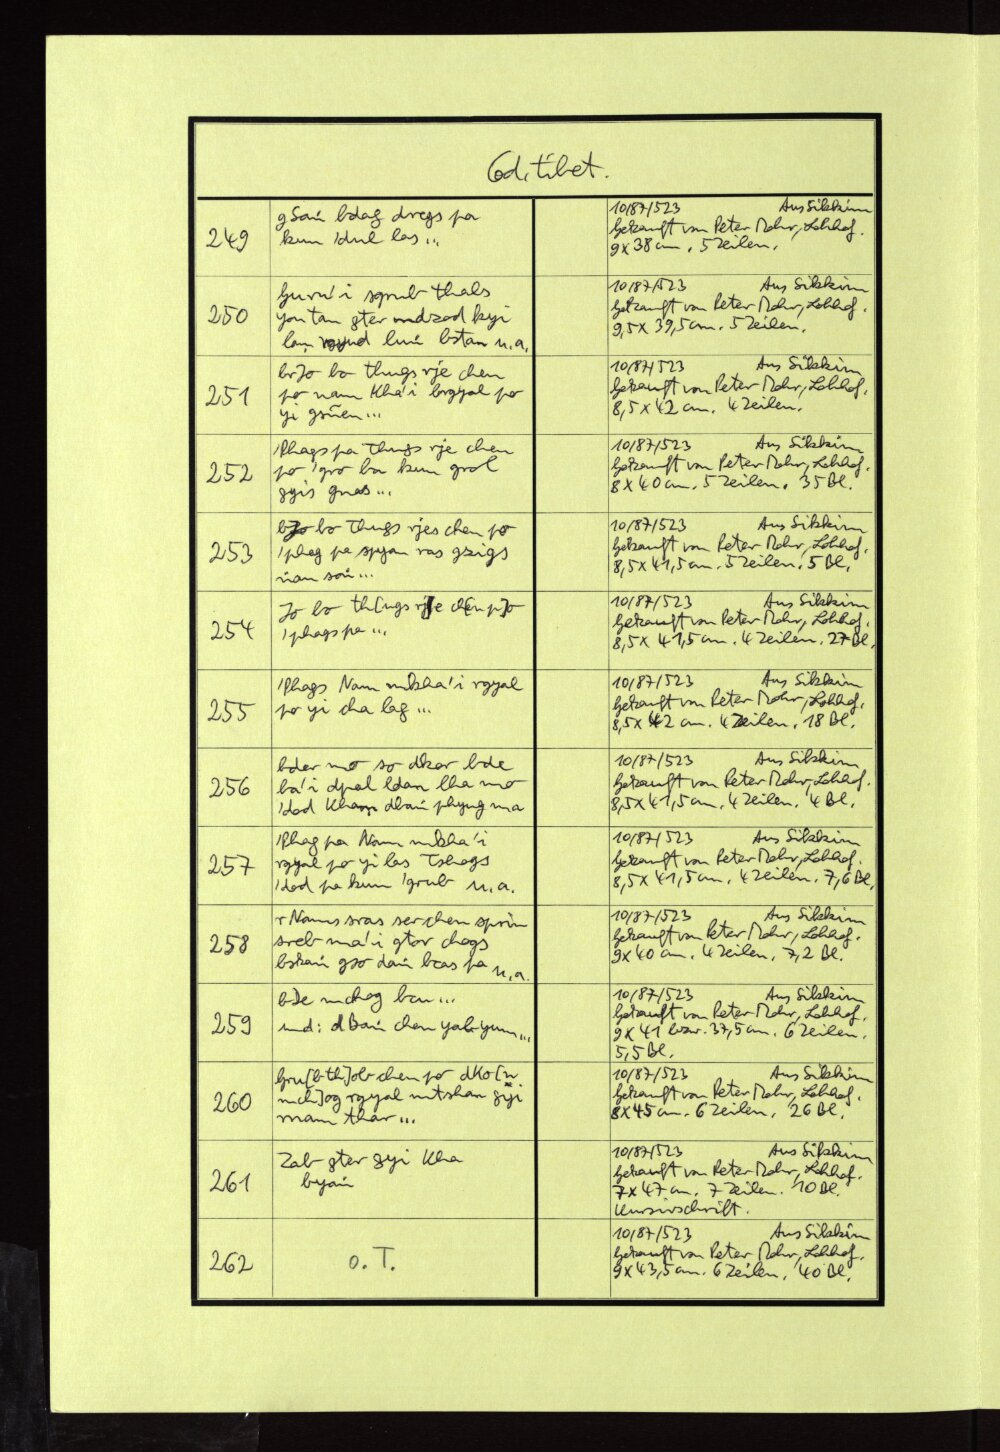 Cod. tibet.
249
gSaṅ bdag dregs pa
kun 'dul las ...
10/87/523 Aus Sikkim
Gekauft von Peter Mohr, Lohhof.
9x38 cm. 5 Zeilen.
250
Guru'i sgrub thabs
yon tan gter mdzod kyi
lam luṅ bstan u.a.
10/87/523 Aus Sikkim
Gekauft von Peter Mohr, Lohhof.
9,5x39,5 cm. 5 Zeilen.
251
brJo bo thugs rje chen
po nam kha'i brgyal po
yi gsñen ...
10/87/523 Aus Sikkim
Gekauft von Peter Mohr, Lohhof.
8,5x42 cm. 4 Zeilen.
252
'Phags pa thugs rje chen
po 'gro ba kun grol
gyis gnas ...
10/87/523 Aus Sikkim
Gekauft von Peter Mohr, Lohhof.
8x40 cm. 5 Zeilen. 35 Bl.
253
bJo bo thugs rjes chen po
'phag pa spyan ras gzigs
ṅan soṅ ...
10/87/523 Aus Sikkim
Gekauft von Peter Mohr, Lohhof.
8,5x41,5 cm. 5 Zeilen. 5 Bl.
254
Jo bo th[ugs rj]e ch[en p]o
'phags pa ...
10/87/523 Aus Sikkim
Gekauft von Peter Mohr, Lohhof.
8,5x41,5 cm. 4 Zeilen. 27 Bl.
255
'Phags Nam mkha'i rgyal
po yi cha lag ...
10/87/523 Aus Sikkim
Gekauft von Peter Mohr, Lohhof.
8,5x42 cm. 4 Zeilen. 18 Bl.
256
bder mo so dkar bde
ba'i dpal ldan lha mo
'dod khams dbaṅ phyug ma
10/87/523 Aus Sikkim
Gekauft von Peter Mohr, Lohhof.
8,5x41,5 cm. 4 Zeilen. 4 Bl.
257
'Phag pa Nam mkha'i
rgyal po yi las Tshogs
'dod pa kun 'grub u.a.
10/87/523 Aus Sikkim
Gekauft von Peter Mohr, Lohhof.
8,5x41,5 cm. 4 Zeilen. 7,6 Bl.
258
rNams sras ser chen sprin
sreb ma'i gtor chogs
bskaṅ gso daṅ bcas pa u.a.
10/87/523 Aus Sikkim
Gekauft von Peter Mohr, Lohhof.
9x40 cm. 4 Zeilen. 7,2 Bl.
259
bDe mchog bcu ...
und: dBaṅ chen yab yum ...
10/87/523 Aus Sikkim
Gekauft von Peter Mohr, Lohhof.
9x41 bzw. 37,5 cm. 6 Zeilen.
5,5 Bl.
260
Gru[b th]ob chen po dKo[n
mch]og rgyal mtshan gyi
rnam thar ...
10/87/523 Aus Sikkim
Gekauft von Peter Mohr, Lohhof.
8x45 cm. 6 Zeilen. 26 Bl.
261
Zab gter gyi kha
byaṅ
10/87/523 Aus Sikkim
Gekauft von Peter Mohr, Lohhof.
7x47 cm. 7 Zeilen. 10 Bl.
Kursivschrift.
262
o. T.
10/87/523 Aus Sikkim
Gekauft von Peter Mohr, Lohhof.
9x43,5 cm. 6 Zeilen. 40 Bl.